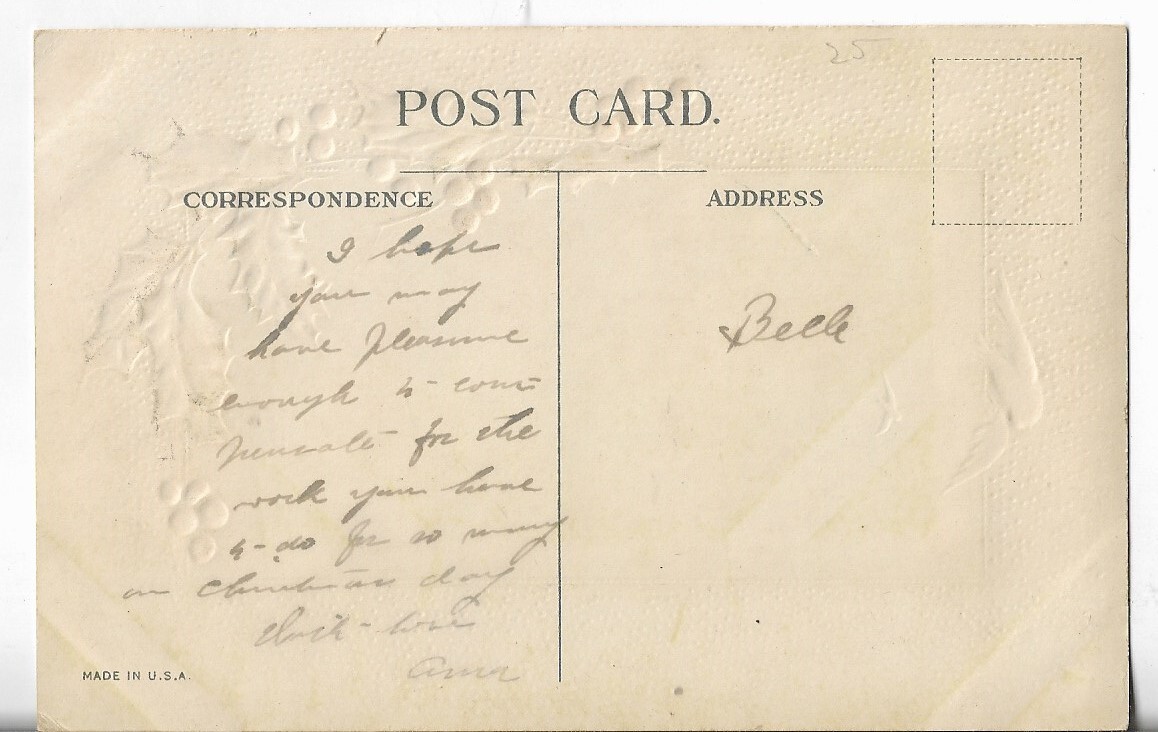 25
POST CARD.
CORRESPONDENCE
ADDRESS
I hope
you may
have pleasure
enough to com
pensate for the
work you have
to do for so many
on Christmas day
love
Anna
Belle
MADE IN U.S.A.